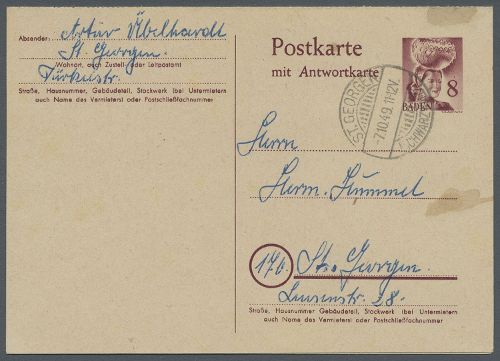 Absender: Artur Übelhardt
St. Georgen.
Wohnort, auch Zustell- oder Leitpostamt
Straße, Hausnummer, Gebäudeteil, Stockwerk (bei Untermietern
auch Name des Vermieters) oder Postschließfachnummer
Postkarte
mit Antwortkarte
8
BADEN
ST. GEORGEN
7.10.49.11-12V.
(SCHWARZW
Herrn
Herm. Hummel
17b St. Georgen.
28.
Straße, Hausnummer, Gebäudeteil, Stockwerk (bei Untermietern
auch Name des Vermieters) oder Postschließfachnummer